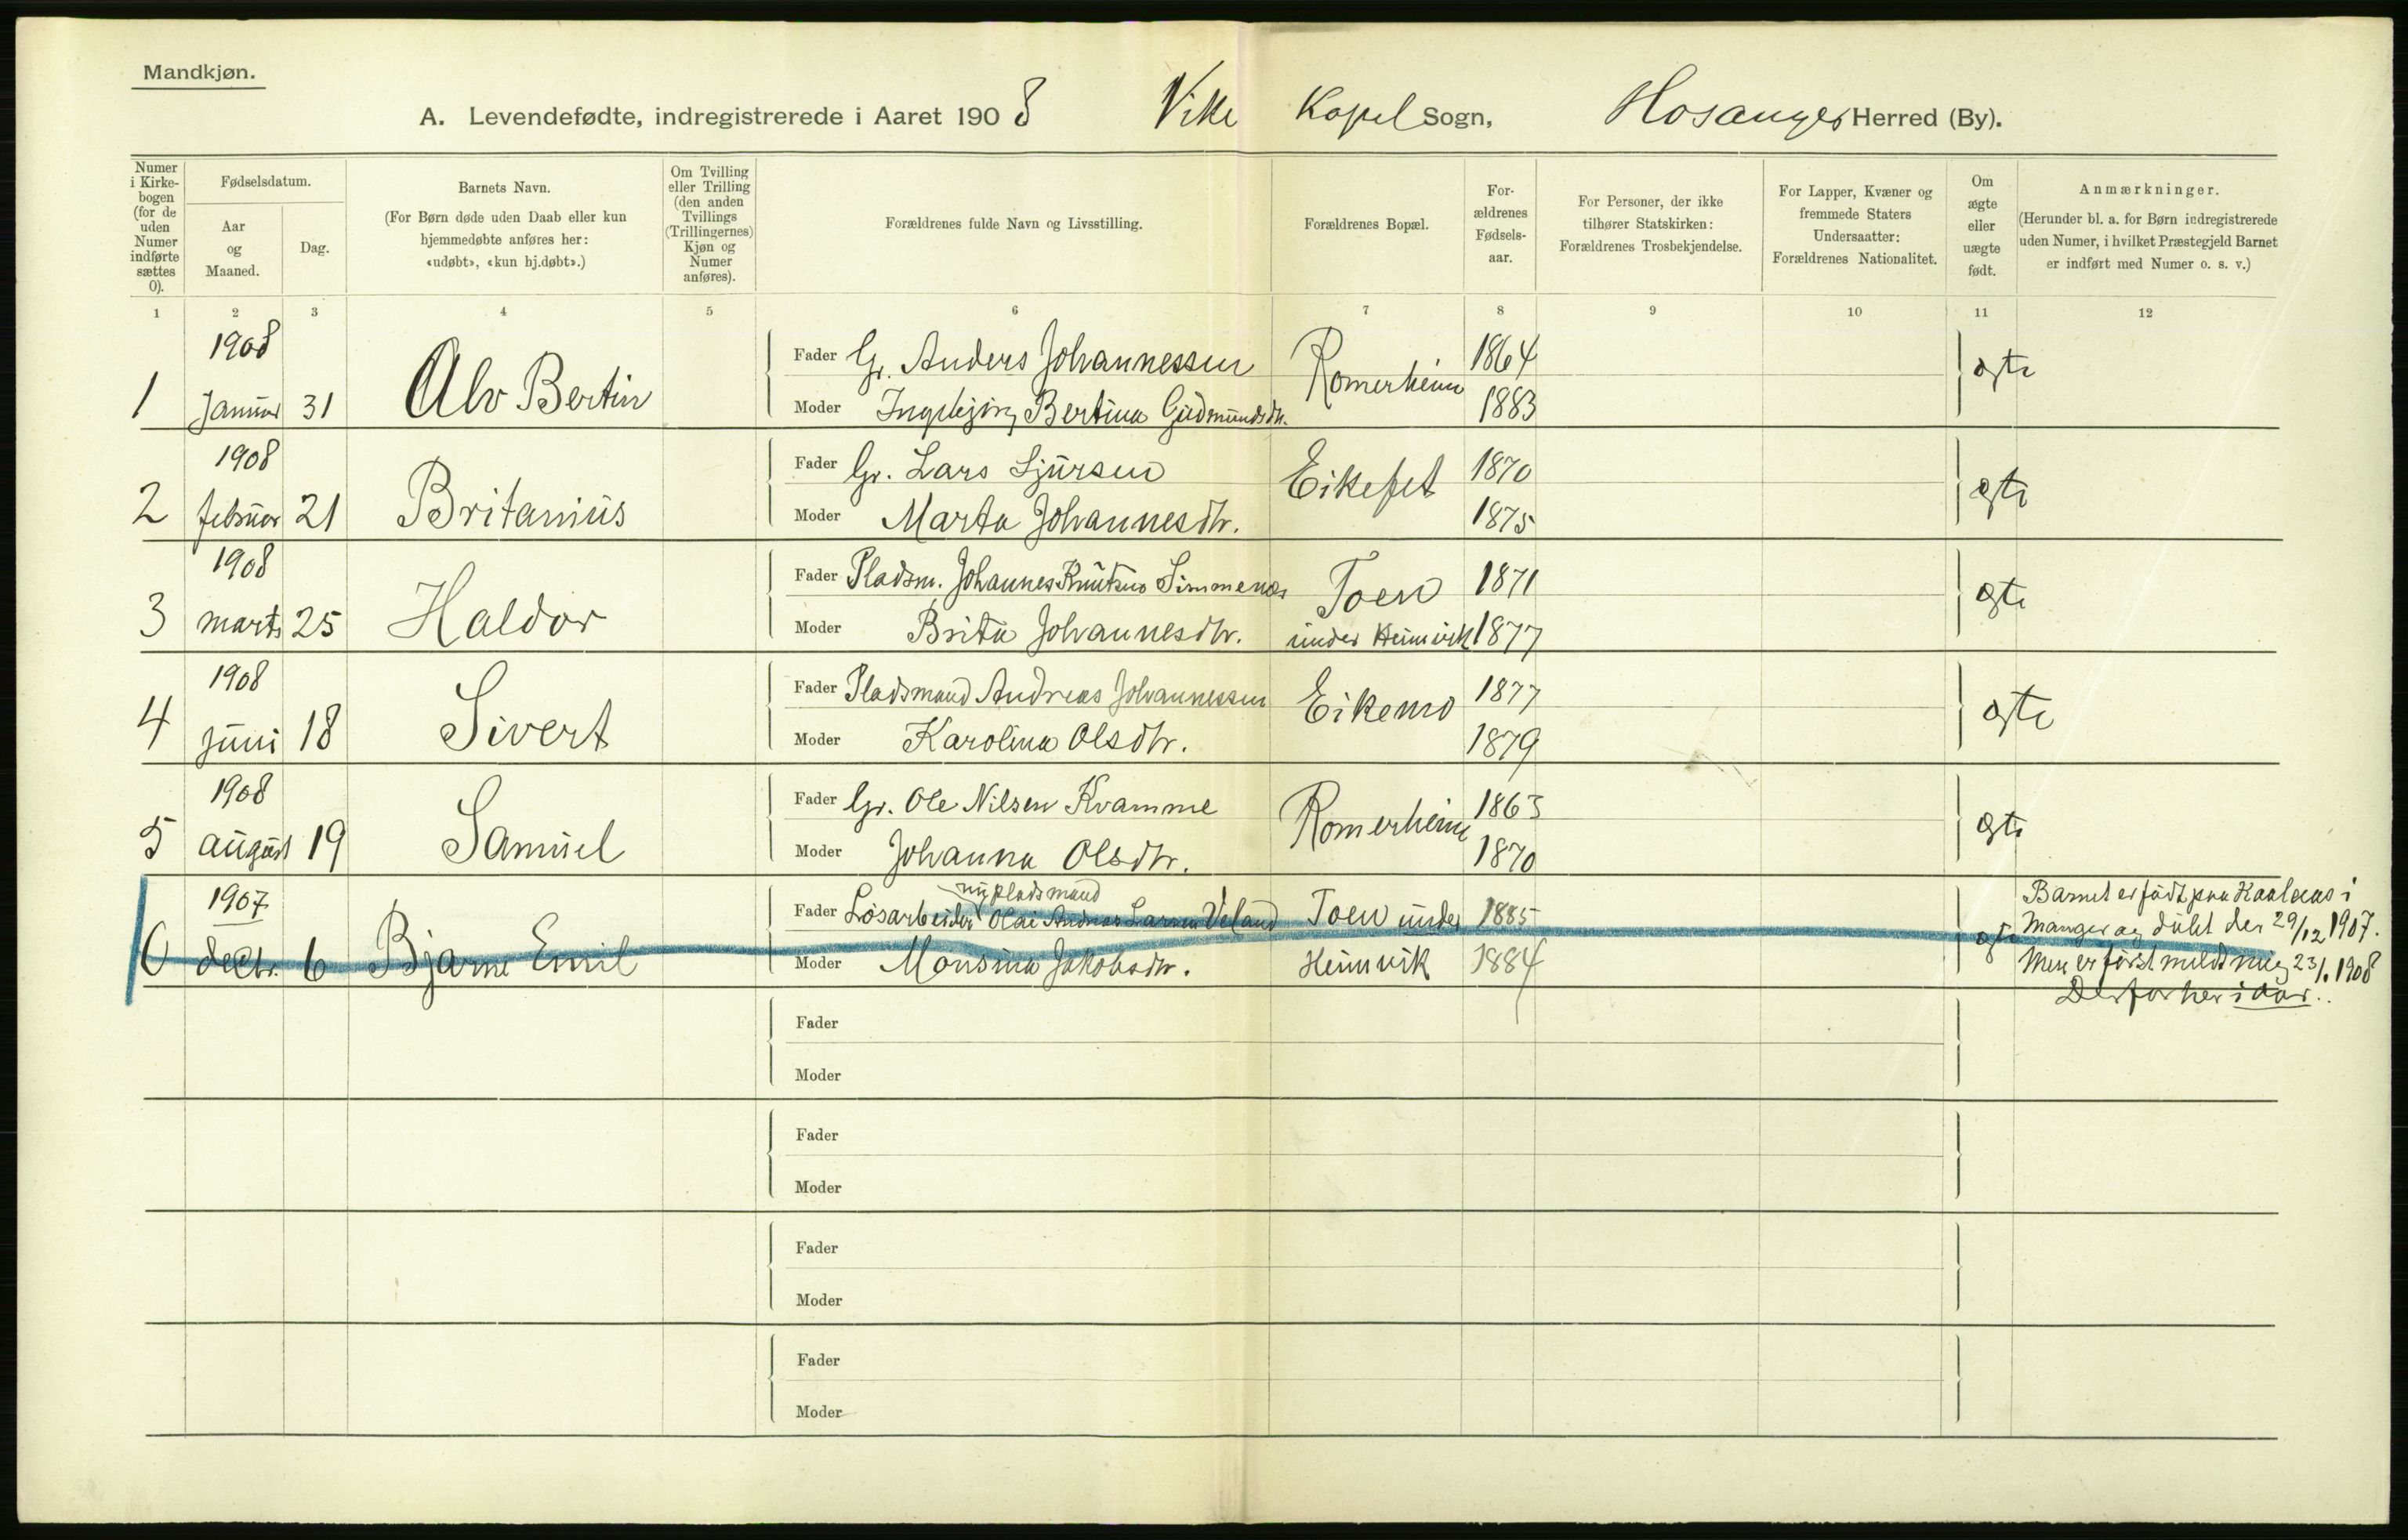 Mandkjøn.
A. Levendefødte, indregistrerede i Aaret 1908 Vike Kapel Sogn, Hosanger Herred (By).
Numer i Kirke-bogen (for de uden Numer indførte sættes 0).
Fødselsdatum.
Aar og Maaned.
Dag.
Barnets Navn.
(For Børn døde uden Daab eller kun hjemmedøbte anføres her: «udøbt», «kun hj.døbt».)
Om Tvilling eller Trilling (den anden Tvillings (Trillingernes) Kjøn og Numer anføres).
Forældrenes fulde Navn og Livsstilling.
Forældrenes Bopæl.
For-ældrenes Fødsels-aar.
For Personer, der ikke tilhører Statskirken: Forældrenes Trosbekjendelse.
For Lapper, Kvæner og fremmede Staters Undersaatter: Forældrenes Nationalitet.
Om ægte eller uægte født.
Anmærkninger.
(Herunder bl. a. for Børn indregistrerede uden Numer, i hvilket Præstegjeld Barnet er indført med Numer o. s. v.)
1 2 3 4 5 6 7 8 9 10 11 12
1908
Fader Gr. Anders Johannessen Romerheim 1864 ægte
1 Januar 31 Alv Bertin
Moder Ingebjørg Bertina Gudmundsdtr. 1883
1908
Fader Gr. Lars Sjursen Eikefet 1870 ægte
2 februar 21 Britanius
Moder Marta Johannesdtr. 1875
1908
Fader Pladsm. Johannes Knutsen Simmenes Toen 1871 ægte
3 marts 25 Haldor
Moder Brita Johannesdtr. under Heimvik 1877
1908
Fader Pladsmand Andreas Johannessen Eikemo 1877 ægte
4 juni 18 Sivert
Moder Karolina Olsdtr. 1879
1908
Fader Gr. Ole Nilsen Kvamme Romerheim 1863 ægte
5 august 19 Samuel
Moder Johanna Olsdtr. 1870
1907
nu pladsmand
Fader Løsarbeider Olai Andreas Larsen Veland Toen under 1885 ægte
6 decbr. 6 Bjarne Emil
Moder Monsina Jakobsdtr. Heimvik 1884
Barnet er født paa Kaalaas i
Manger og døbt der 29/12 1907.
Men er først meldt mig 23/1 1908
Derfor her i aar.
Fader
Moder
Fader
Moder
Fader
Moder
Fader
Moder